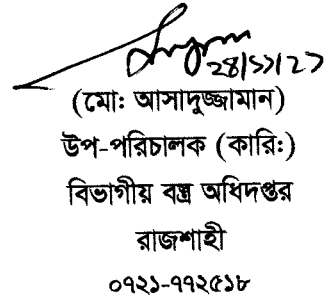 ২৪/১১/২১
(মো: আসাদুজ্জামান)
উপ-পরিচালক (কারি:)
বিভাগীয় বস্ত্র অধিদপ্তর
রাজশাহী
০৭২১-৭৭২৫১৮